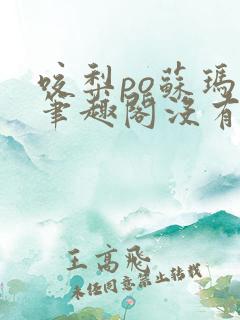 咬梨po蘇瑪
筆趣閣沒有
王高飛
未经同意禁止转载